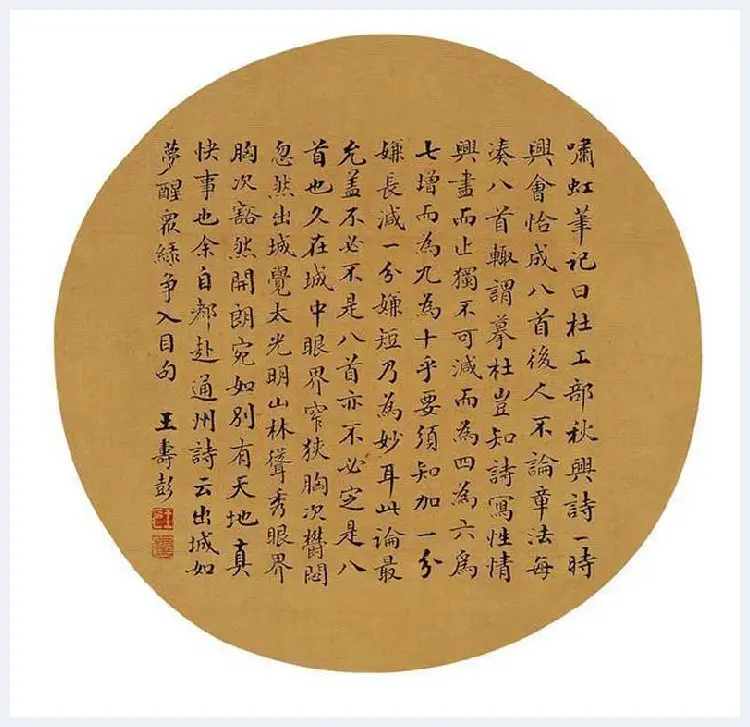 嘯虹筆记曰杜工部秋興詩一時
興會恰成八首後人不論章法每
湊八首輒謂摹杜豈知詩寫性情
興盡而止獨不可減而為四為六為
七增而為九為十乎要須知加一分
嫌長減一分嫌短乃為妙耳此論最
允盖不必不是八首亦不必定是八
首也久在城中眼界窄狹胸次鬱悶
忽然出城覺太光明山林聳秀眼界
胸次豁然開朗宛如別有天地真
快事也余自都赴通州詩云出城如
夢醒衆緑争入目句
王壽彭